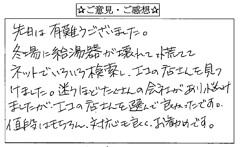 ☆ご意見・ご感想☆
先日は有難うございました。
冬場に給湯器が壊れて、慌てて
ネットでいろいろ検索し、エコの店さんを見つ
けました。迷うほどたくさんの会社がありお悩み
ましたが、エコの店さんを選んで良かったです。
値段はもちろん、対応も良く、お勧めです。